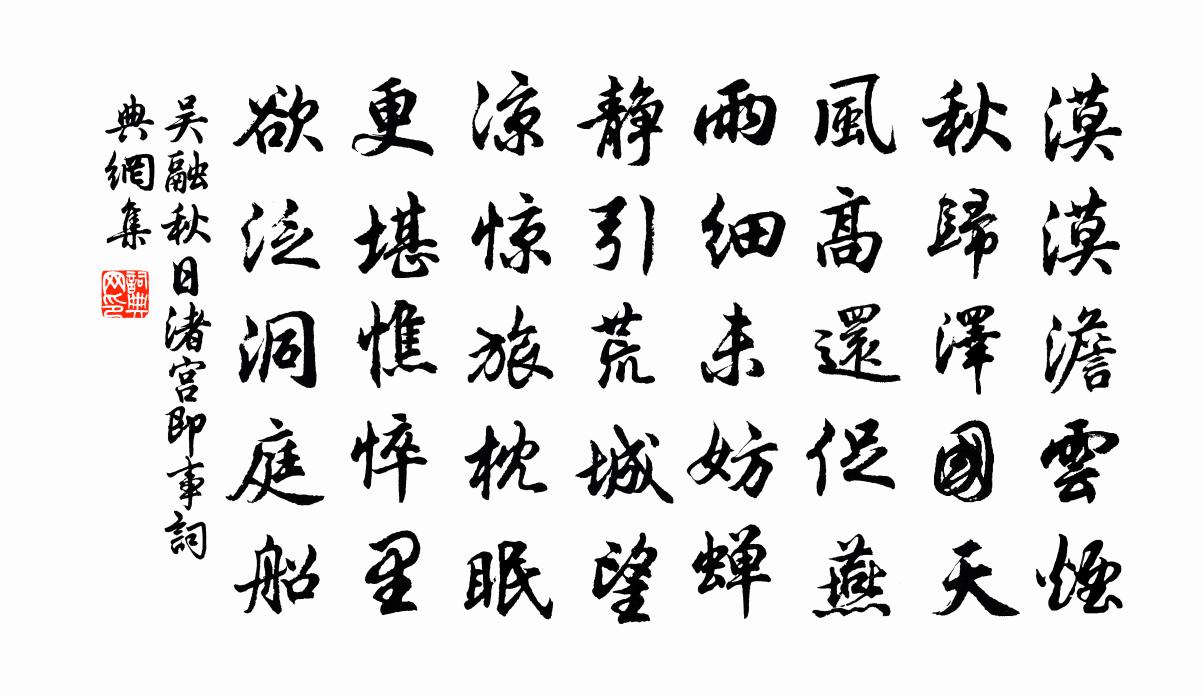 漠漠澹雲煙
秋歸澤國天
風高還促燕
雨細未妨蝉
静引荒城望
凉惊旅枕眠
更堪憔悴里
欲泛洞庭船
吴融秋日渚宫即事詞
典網集
詞典网印